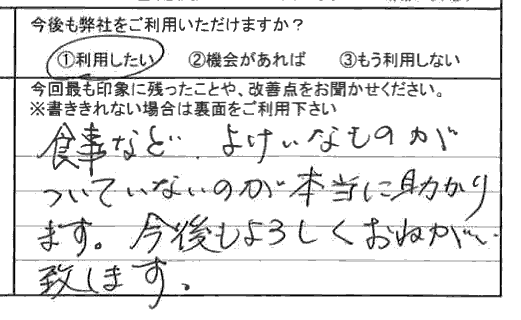 今後も弊社をご利用いただけますか？
①利用したい ②機会があれば ③もう利用しない
今回最も印象に残ったことや、改善点をお聞かせください。
※書ききれない場合は裏面をご利用下さい
食事など、よけいなものが
ついていないのが本当に助かり
ます。今後もよろしくおねがい
致します。